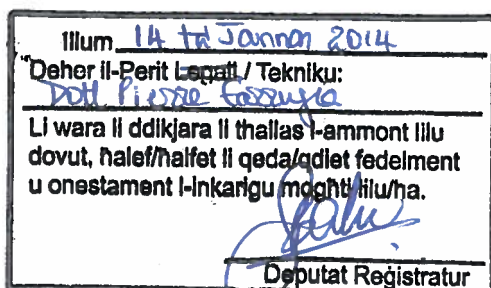 Illum 14 ta' Jannar 2014
Deher il-Perit Legali / Tekniku:
Dott Pierre Farrugia
Li wara li ddikjara li tħallas l-ammont lilu
dovut, ħalef/ħalfet li qeda/qdiet fedelment
u onestament l-inkarigu mogħti lilu/ha.
Deputat Reġistratur